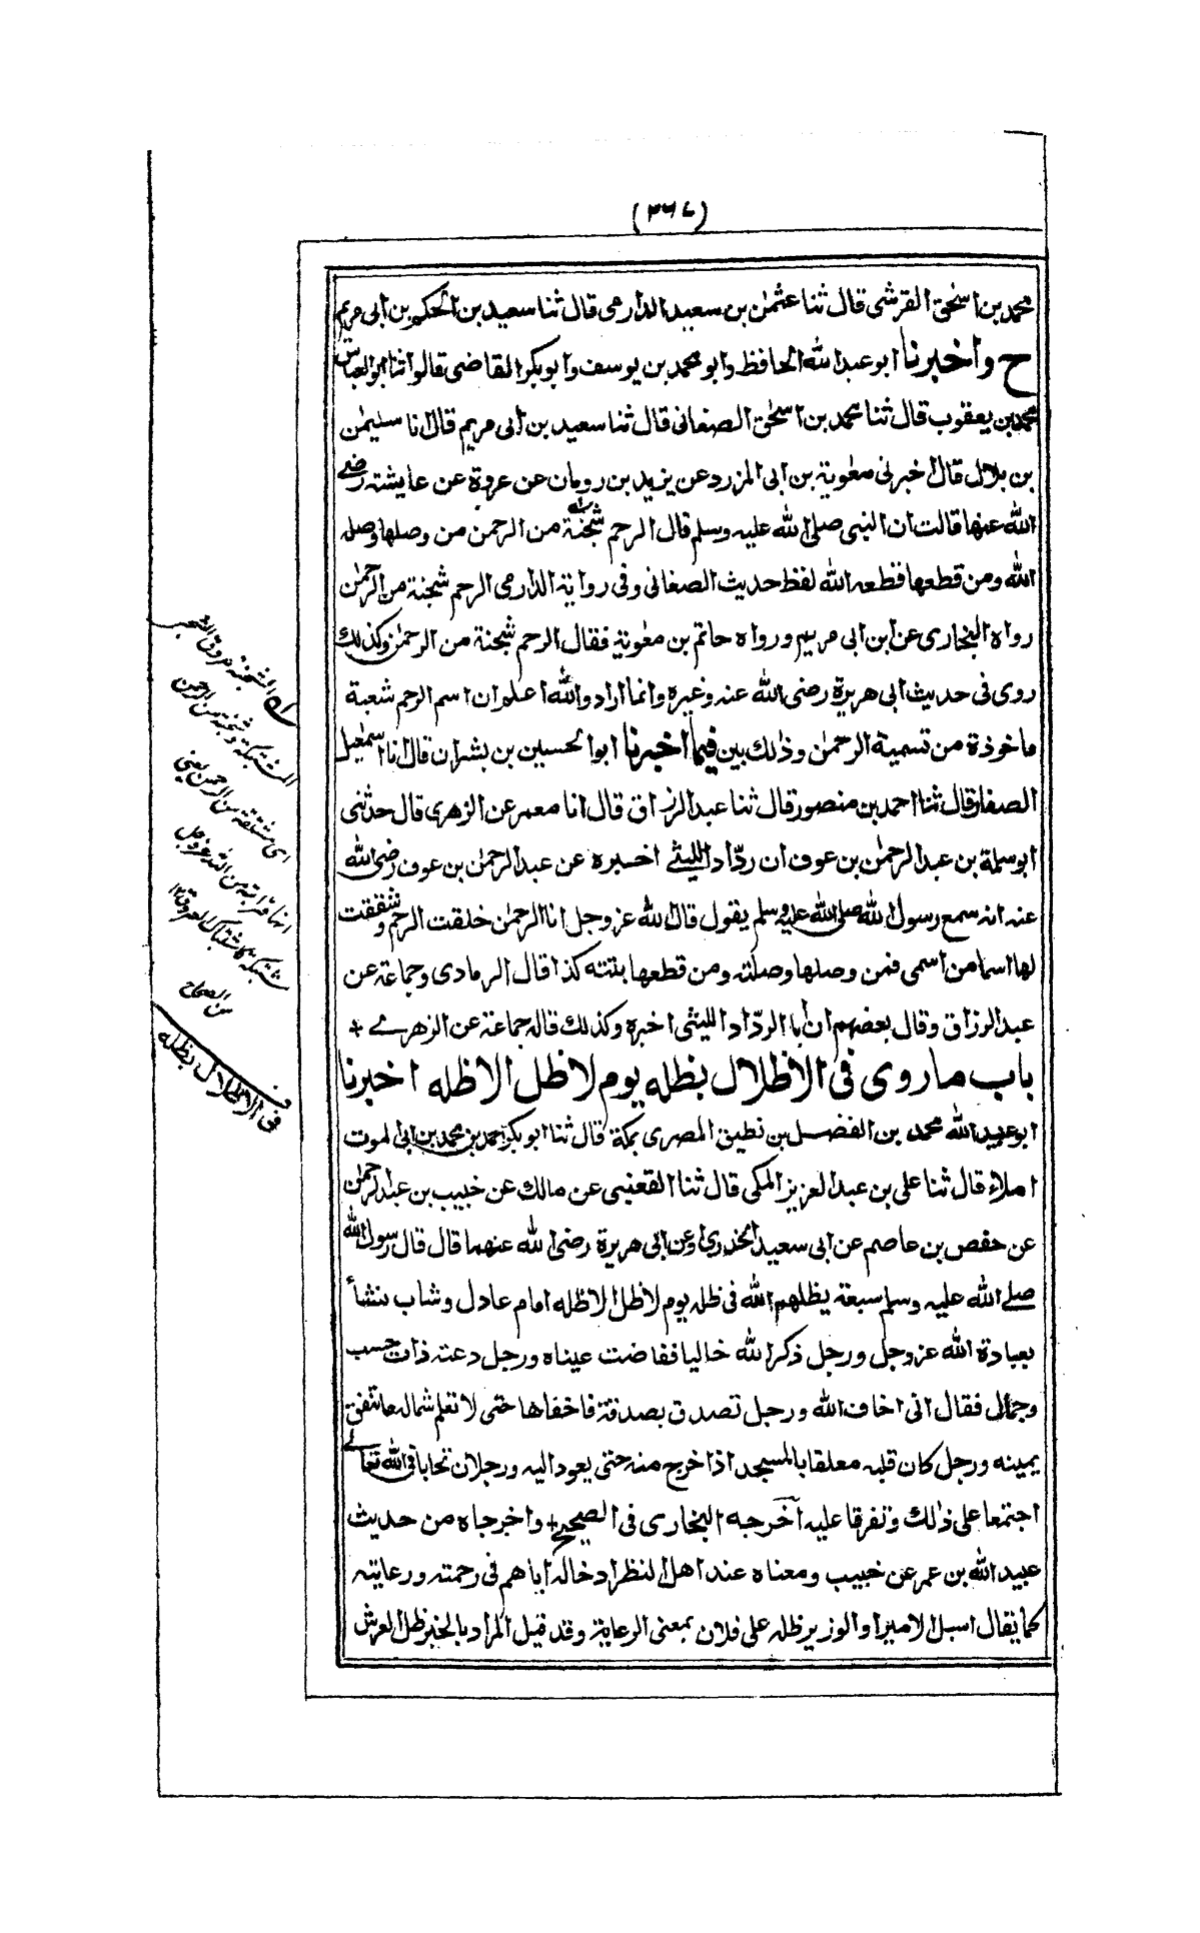 (٣٦٧)
محمد بن اسحٰق القرشي قال ثنا عثمٰن بن سعيد الدارمي قال ثنا سعيد بن الحكم بن ابى مريم
ح واخبرنا ابو عبد الله الحافظ وابو محمد بن يوسف وابوبكر القاضى قالوا ثنا ابو العباس
محمد بن يعقوب قال ثنا محمد بن اسحٰق الصغانى قال ثنا سعيد بن ابى مريم قال انا سليمٰن
بن بلال قال اخبرنى معٰوية بن ابى المزرد عن يزيد بن رومان عن عروة عن عايشة رضے
الله عنها قالت ان النبى صلى الله عليه وسلم قال الرحم شجنة من الرحمن من وصلها وصله
الله ومن قطعها قطعه الله لفظ حديث الصغانى وفى رواية الدارمى الرحم شجنة من الرحمٰن
رواه البخارى عن ابن ابى مريم ورواه حاتم بن معٰوية فقال الرحم شجنة من الرحمٰن وكذلك
روى فى حديث ابى هريرة رضى الله عنه وغيره وانما اراد والله اعلم ان اسم الرحم شعبة
ماخوذة من تسمية الرحمٰن وذلك بين فيما اخبرنا ابو الحسين بن بشران قال انا اسمٰعيل
الصفار قال ثنا احمد بن منصور قال ثنا عبد الرزاق قال انا معمر عن الزهرى قال حدثنى
ابو سلمة بن عبد الرحمٰن بن عوف ان ردّاد الليثے اخبره عن عبد الرحمٰن بن عوف رضى الله
عنه انه سمع رسول الله صلى الله عليه وسلم يقول قال الله عز وجل انا الرحمٰن خلقت الرحم وشققت
لها اسما من اسمى فمن وصلها وصلته ومن قطعها بتته كذا قال الرمادى وجماعة عن
عبد الرزاق وقال بعضهم ان ابا الردّاد الليثى اخبره وكذلك قاله جماعة عن الزهرے +
باب ماروى فى الاظلال بظله يوم لا ظل الا ظله اخبرنا
ابو عبد الله محمد بن الفضل بن نظيف المصرى بمكة قال ثنا ابوبكر احمد بن محمد بن ابى الموت
املاء قال ثنا على بن عبد العزيز المكى قال ثنا القعنبى عن مالك عن خبيب بن عبد الرحمٰن
عن حفص بن عاصم عن ابى سعيد الخدرى او عن ابى هريرة رضى الله عنهما قال قال رسول الله
صلے الله عليه وسلم سبعة يظلهم الله فى ظله يوم لا ظل الا ظله امام عادل وشاب نشأ
بعبادة الله عز وجل ورجل ذكر الله خاليا ففاضت عيناه ورجل دعته ذات حسب
وجمال فقال انى اخاف الله ورجل تصدق بصدقة فاخفاها حتى لا تعلم شماله ما تنفق
يمينه ورجل كان قلبه معلقا بالمسجد اذا خرج منه حتى يعود اليه ورجلان تحابا فى الله تعالے
اجتمعا على ذلك وتفرقا عليه اخرجه البخارى فى الصحيح + واخرجاه من حديث
عبيد الله بن عمر عن خبيب ومعناه عند اهل النظر ادخاله اياهم فى رحمته ورعايته
كما يقال اسبل الامير او الوزير ظله على فلان بمعنى الرعاية وقد قيل المراد بالخبر ظل العرش
الشجنة عروق الشجر
المشتبكة وشجنة من الرحمن
اى مشتقة من الرحمن يعنى
انها قرابة من الله عز وجل
مشتبكة كاشتباك العروق ١٢
من الصحاح
فى الاظلال بظله